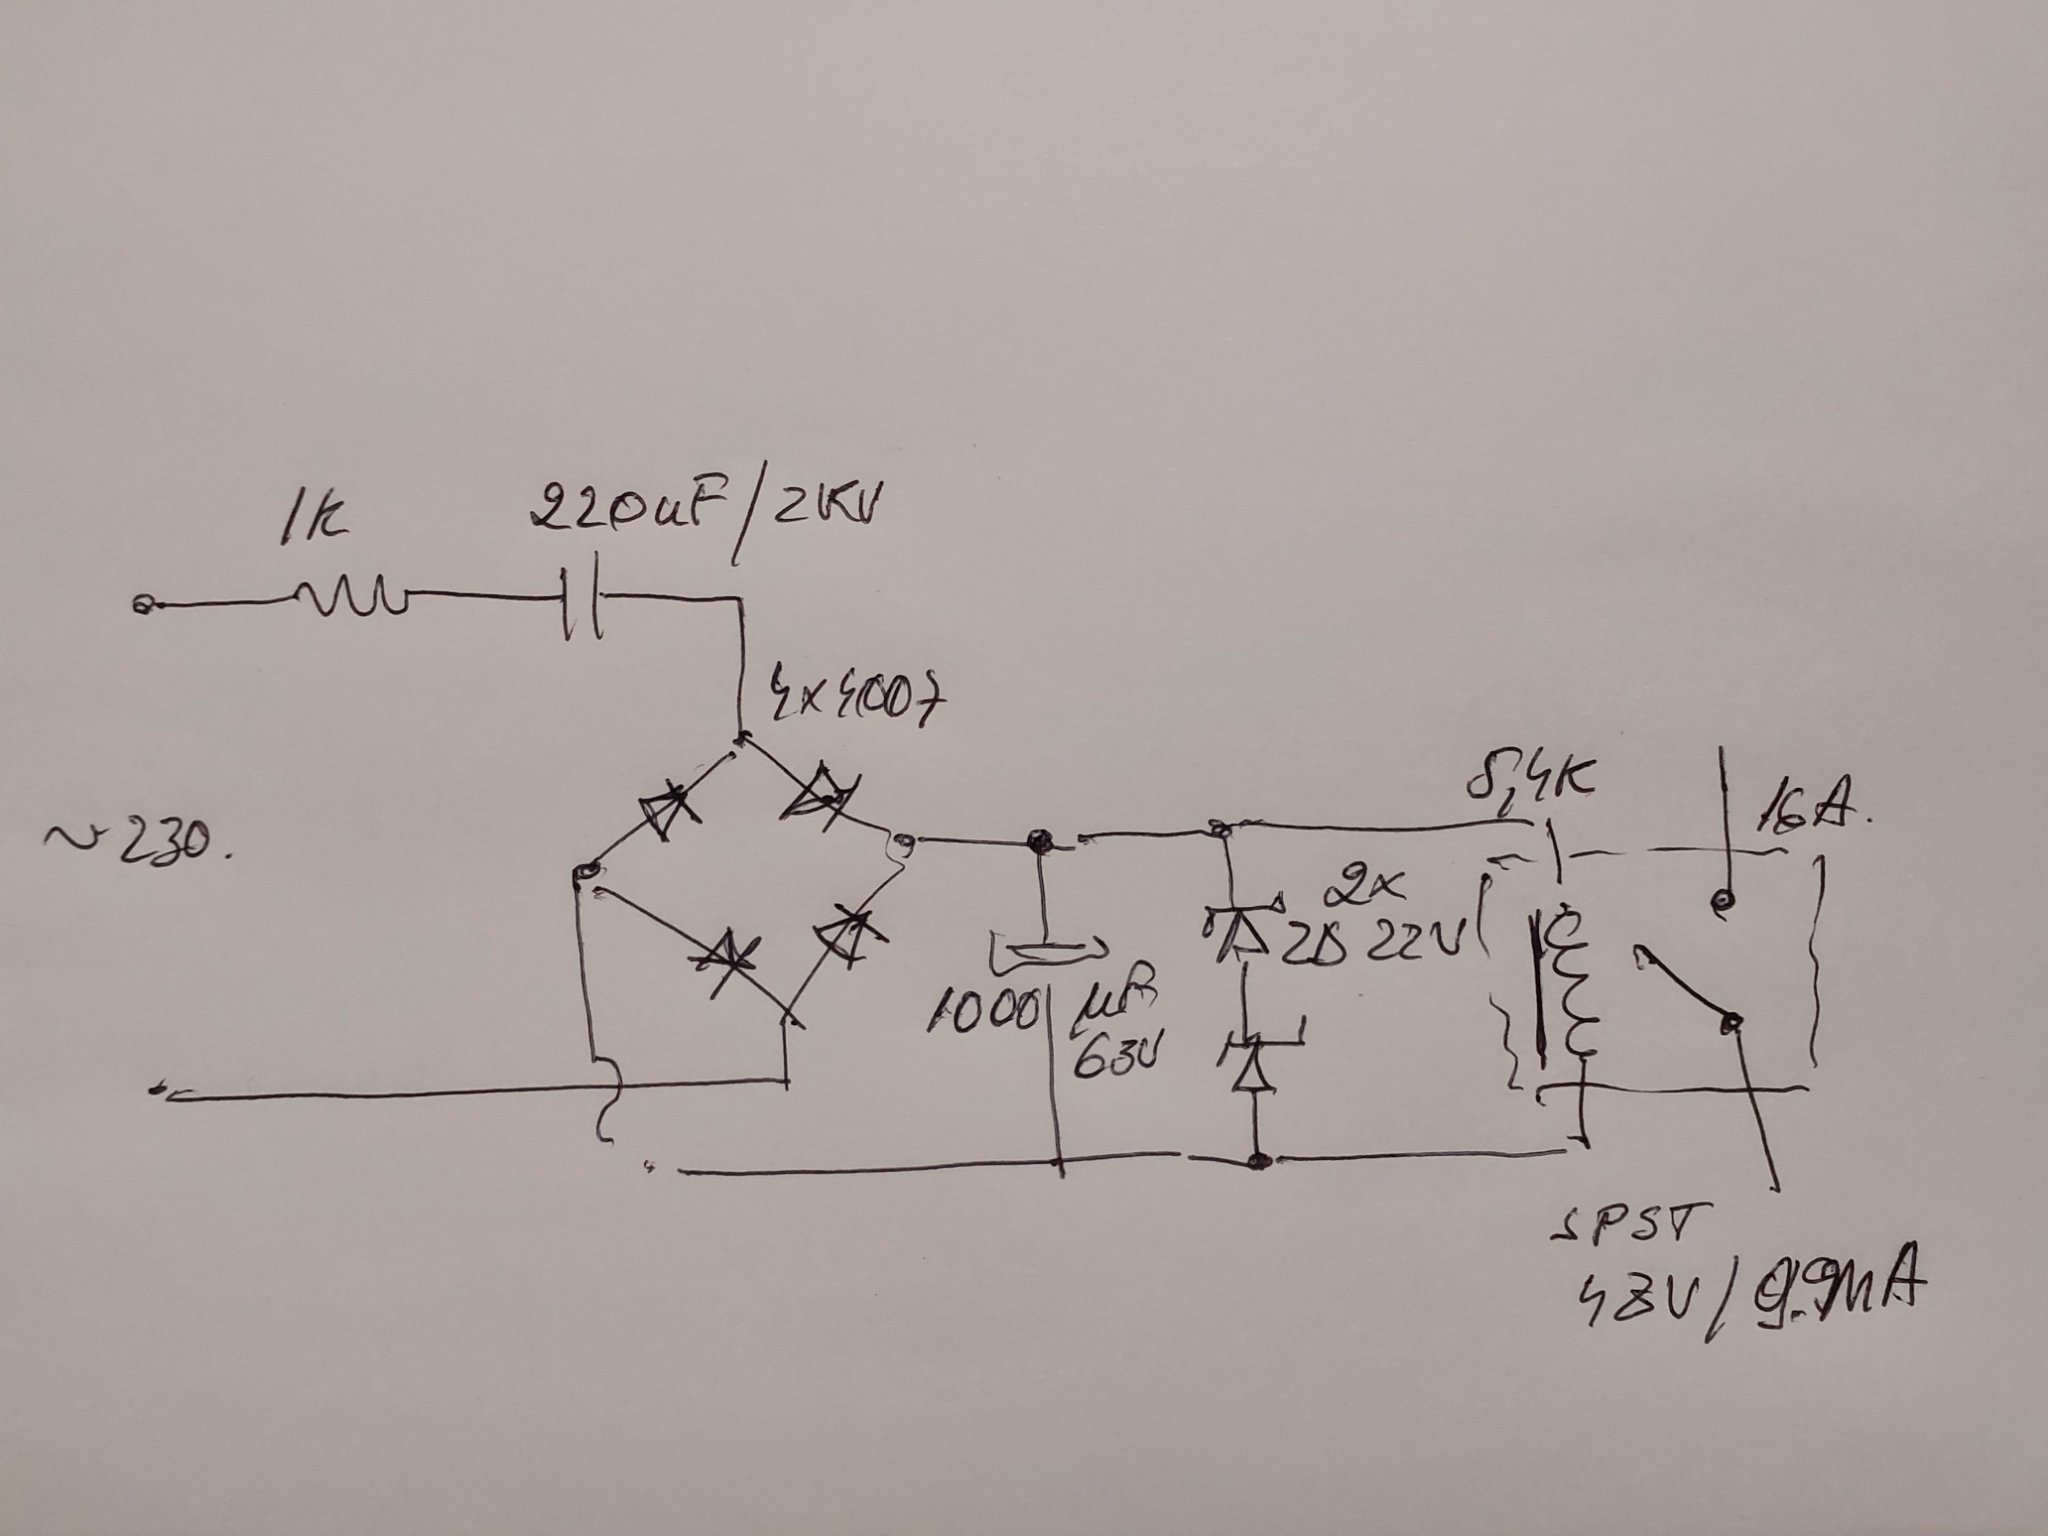 1K
220uF/2KV
4x4007
~230.
5,4K
16A.
2x
ZD 22V
1000 µF
63V
SPST
48V/9.9mA